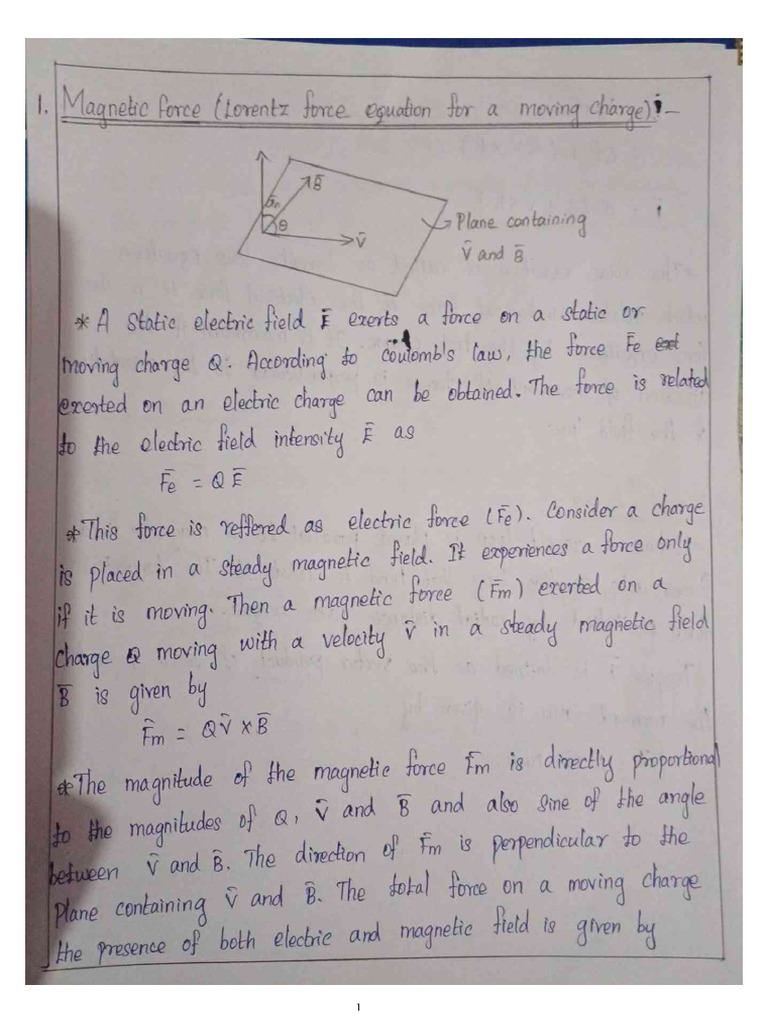 1. Magnetic force (Lorentz force equation for a moving charge):-
B̄
ān
θ
V̄
Plane containing
V̄ and B̄
* A static electric field Ē exerts a force on a static or
moving charge Q. According to coulomb's law, the force F̄e
exerted on an electric charge can be obtained. The force is related
to the electric field intensity Ē as
F̄e = QĒ
* This force is reffered as electric force (F̄e). Consider a charge
is placed in a steady magnetic field. It experiences a force only
if it is moving. Then a magnetic force (F̄m) exerted on a
charge Q moving with a velocity V̄ in a steady magnetic field
B̄ is given by
F̄m = QV̄ × B̄
* The magnitude of the magnetic force F̄m is directly proportional
to the magnitudes of Q, V̄ and B̄ and also sine of the angle
between V̄ and B̄. The direction of F̄m is perpendicular to the
Plane containing V̄ and B̄. The total force on a moving charge
the presence of both electric and magnetic field is given by
1